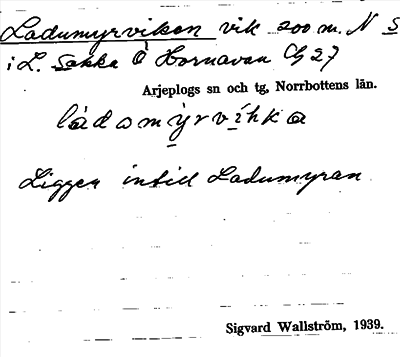 Ladumyrviken vik 200 m. N S
i L. Sakka Ö Hornavan Cg 27
Arjeplogs sn och tg, Norrbottens län.
ládomỳrvíhka
Ligger intill Ladumyran
Sigvard Wallström, 1939.